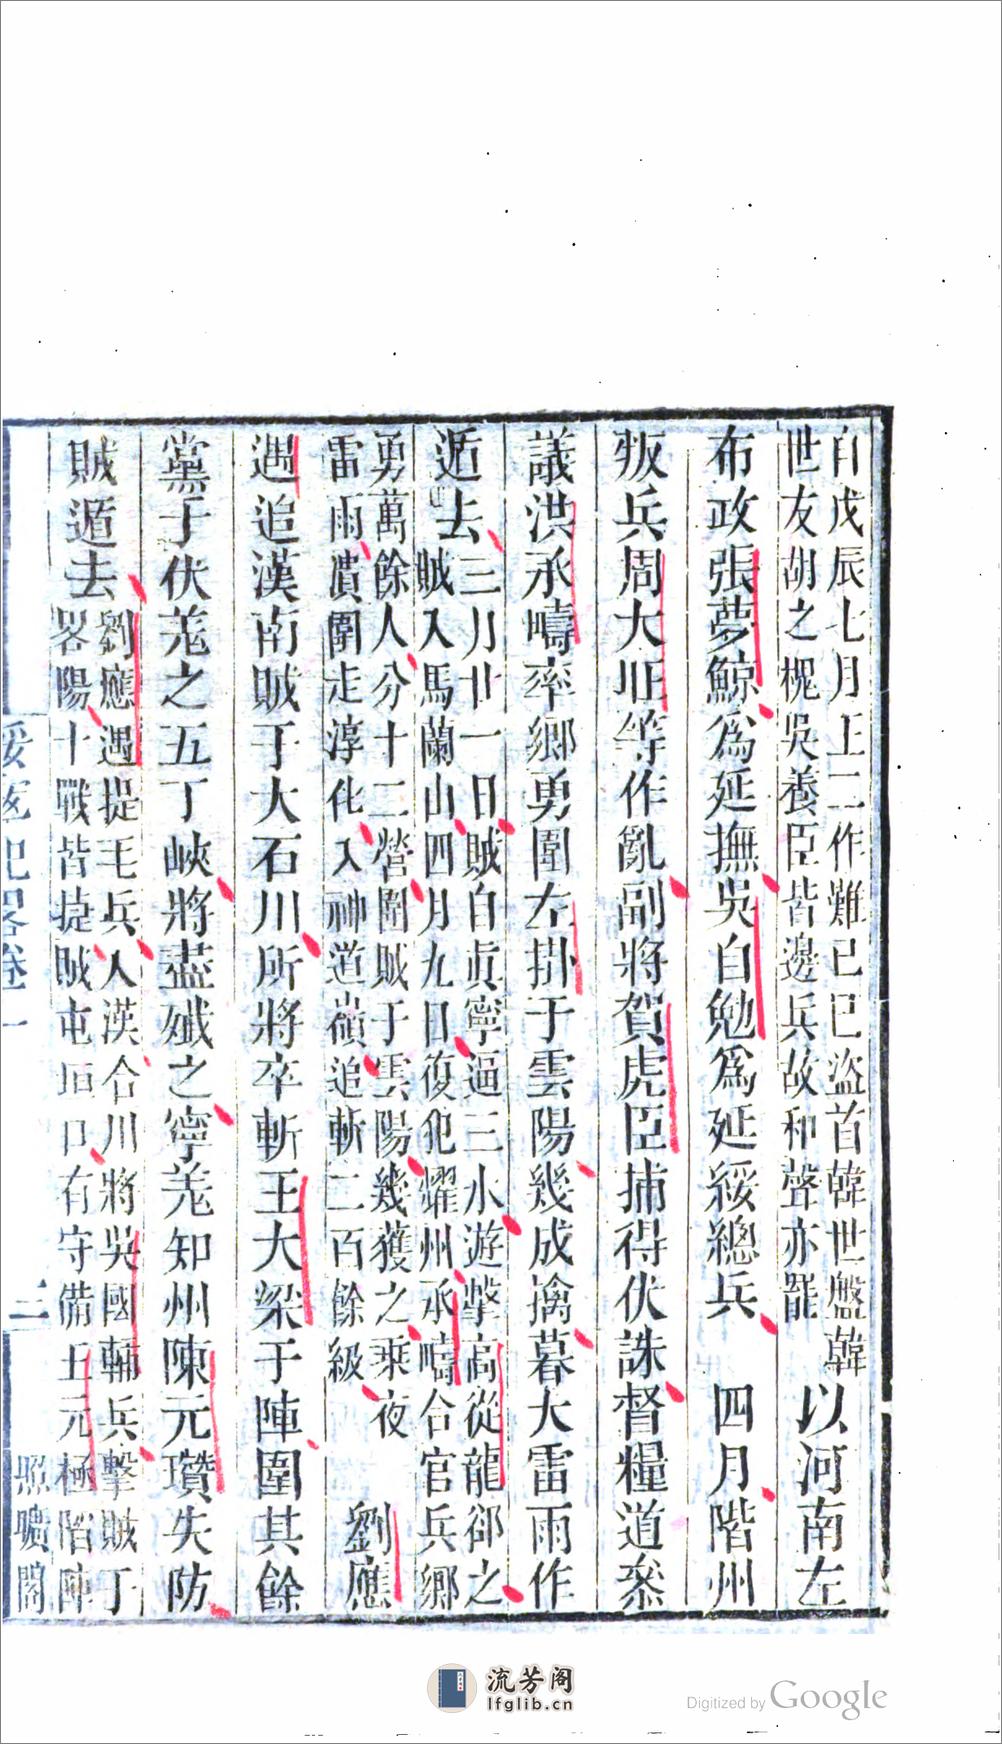 自戊辰七月王二作難已巳盜首韓世盤韓
世友胡之槐吳養臣皆邊兵故和聲亦罷
以河南左
布政張夢鯨爲延撫吳自勉爲延綏總兵 四月階州
叛兵周大旺等作亂副將賀虎臣捕得伏誅督糧道叅
議洪承疇率鄉勇圍左掛于雲陽幾成擒暮大雷雨作
遁去
三月廿一日賊自眞寧逼三水游擊高從龍郤之
賊入馬蘭山四月九日復犯耀州承疇合官兵鄉
勇萬餘人分十二營圍賊于雲陽幾獲之乘夜
雷雨潰圍走淳化入神道嶺追斬二百餘級
劉應
遇追漢南賊于大石川所將卒斬王大梁于陣圍其餘
黨于伏羗之五丁峽將盡殱之寧羗知州陳元瓚失防
賊遁去
劉應遇提毛兵入漢合川將吳國輔兵擊賊于
畧陽十戰皆捷賊屯垣口有守備王元極陷陣
綏寇紀畧卷一
三
照曠閣
流芳阁
lfglib.cn
Digitized by Google